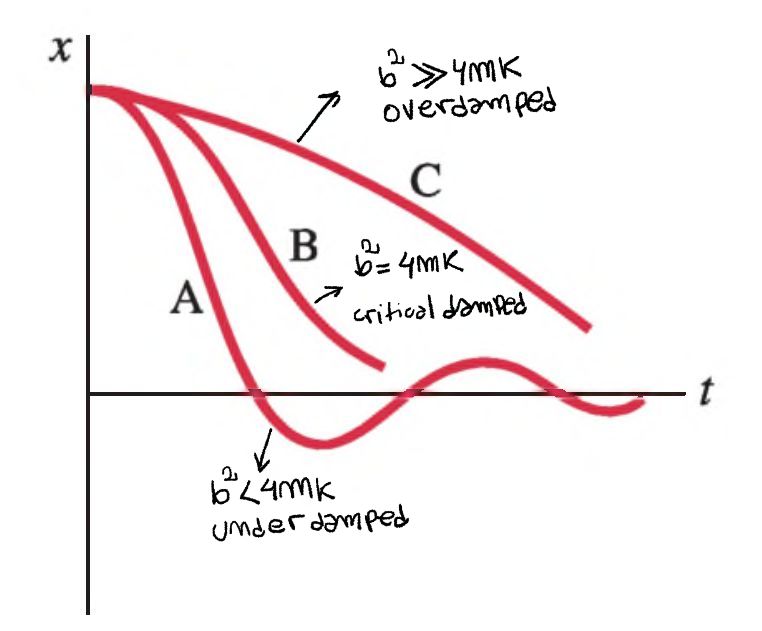 x
b² ≫ 4mK
overdamped
C
B
b² = 4mK
critical damped
A
t
b² < 4mK
under damped